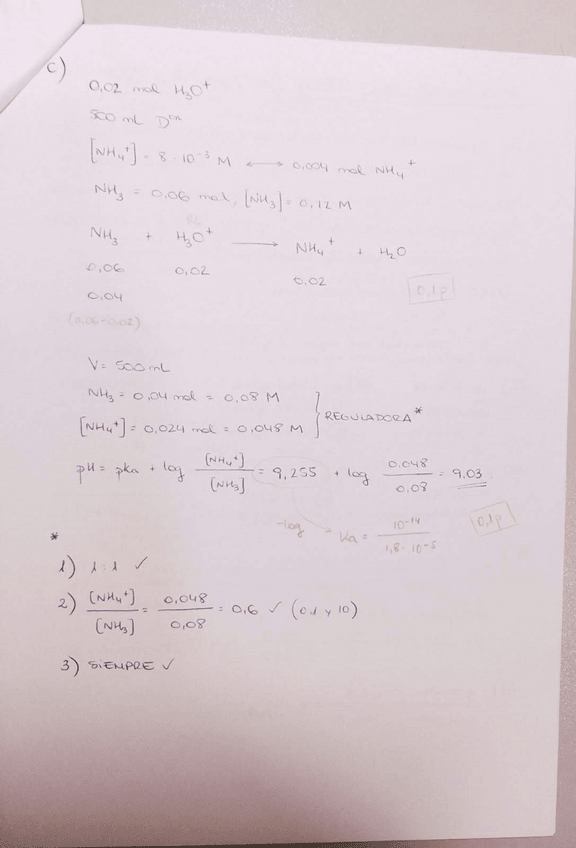 c)
0,02 mol H₃O⁺
500 mL Dᵒⁿ
[NH₄⁺] = 8·10⁻³ M ⟷ 0,004 mol NH₄⁺
NH₃ = 0,06 mol, [NH₃] = 0,12 M
NH₃ + H₃O⁺ ⟶ NH₄⁺ + H₂O
0,06 0,02 0,02
0,04 0,1p
(0,06-0,02)
V = 500 mL
NH₃ = 0,04 mol = 0,08 M
[NH₄⁺] = 0,024 mol = 0,048 M } REGULADORA *
pH = pka + log [NH₄⁺]/[NH₃] = 9,255 + log 0.048/0.08 = 9,03.
-log Ka = 10⁻¹⁴/1,8·10⁻⁵ 0,1p
*
1) 1:1 ✓
2) [NH₄⁺]/[NH₃] = 0,048/0,08 = 0,6 ✓ (0.1 y 10)
3) SIEMPRE ✓